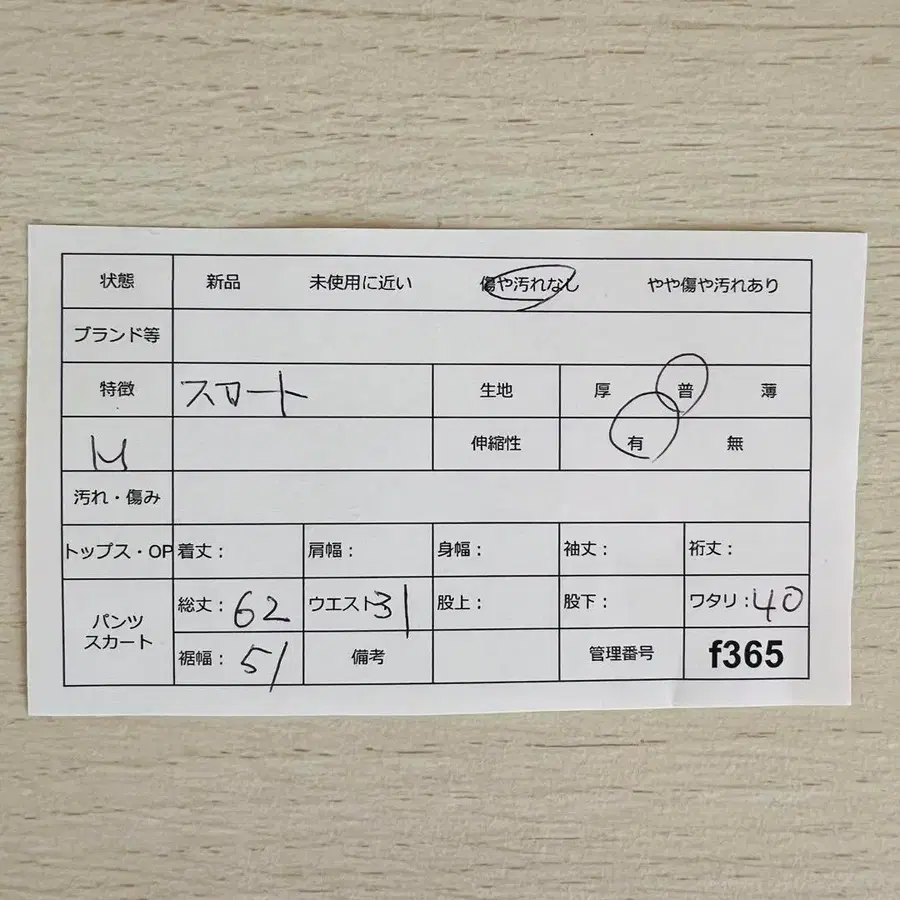 状態 新品 未使用に近い 傷や汚れなし やや傷や汚れあり
ブランド等
特徴 スカート 生地 厚 普 薄
M 伸縮性 有 無
汚れ・傷み
トップス・OP 着丈: 肩幅: 身幅: 袖丈: 裄丈:
パンツ スカート 総丈: 62 ウエスト 31 股上: 股下: ワタリ: 40
裾幅: 51 備考 管理番号 f365